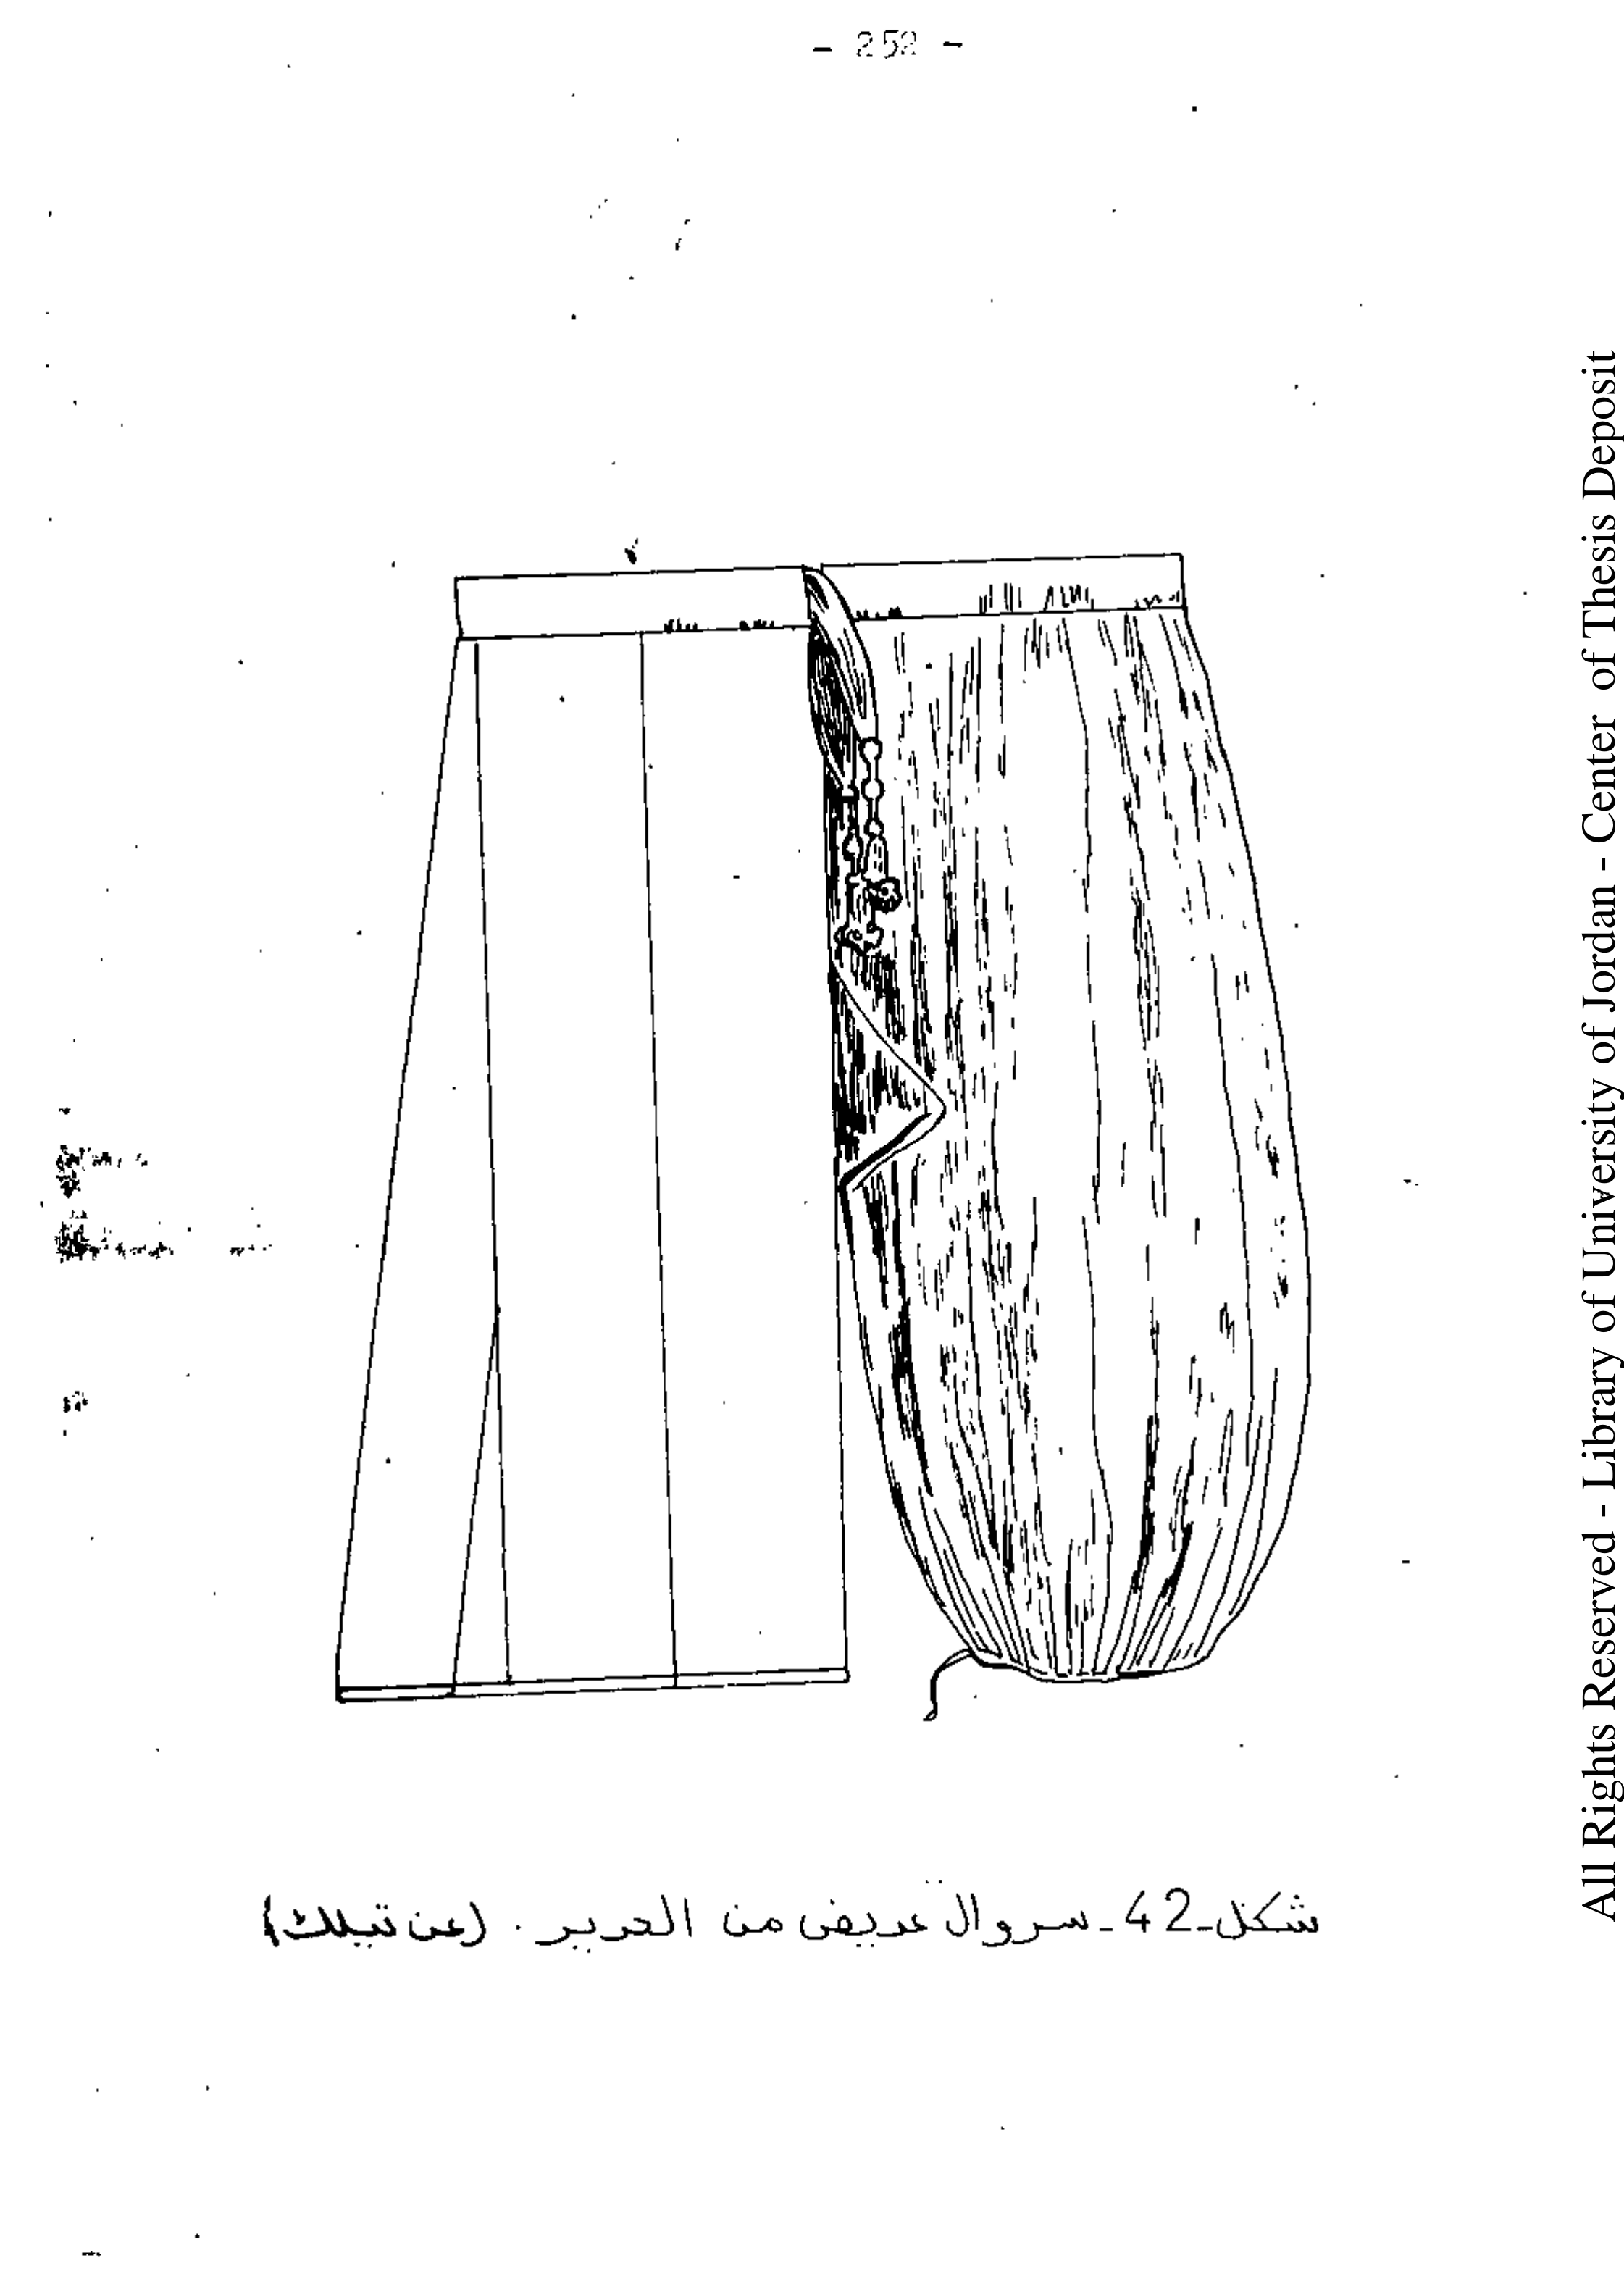 - 252 -
شكل-42-سروال عريض من الحرير. (عن تيلك)
All Rights Reserved - Library of University of Jordan - Center of Thesis Deposit